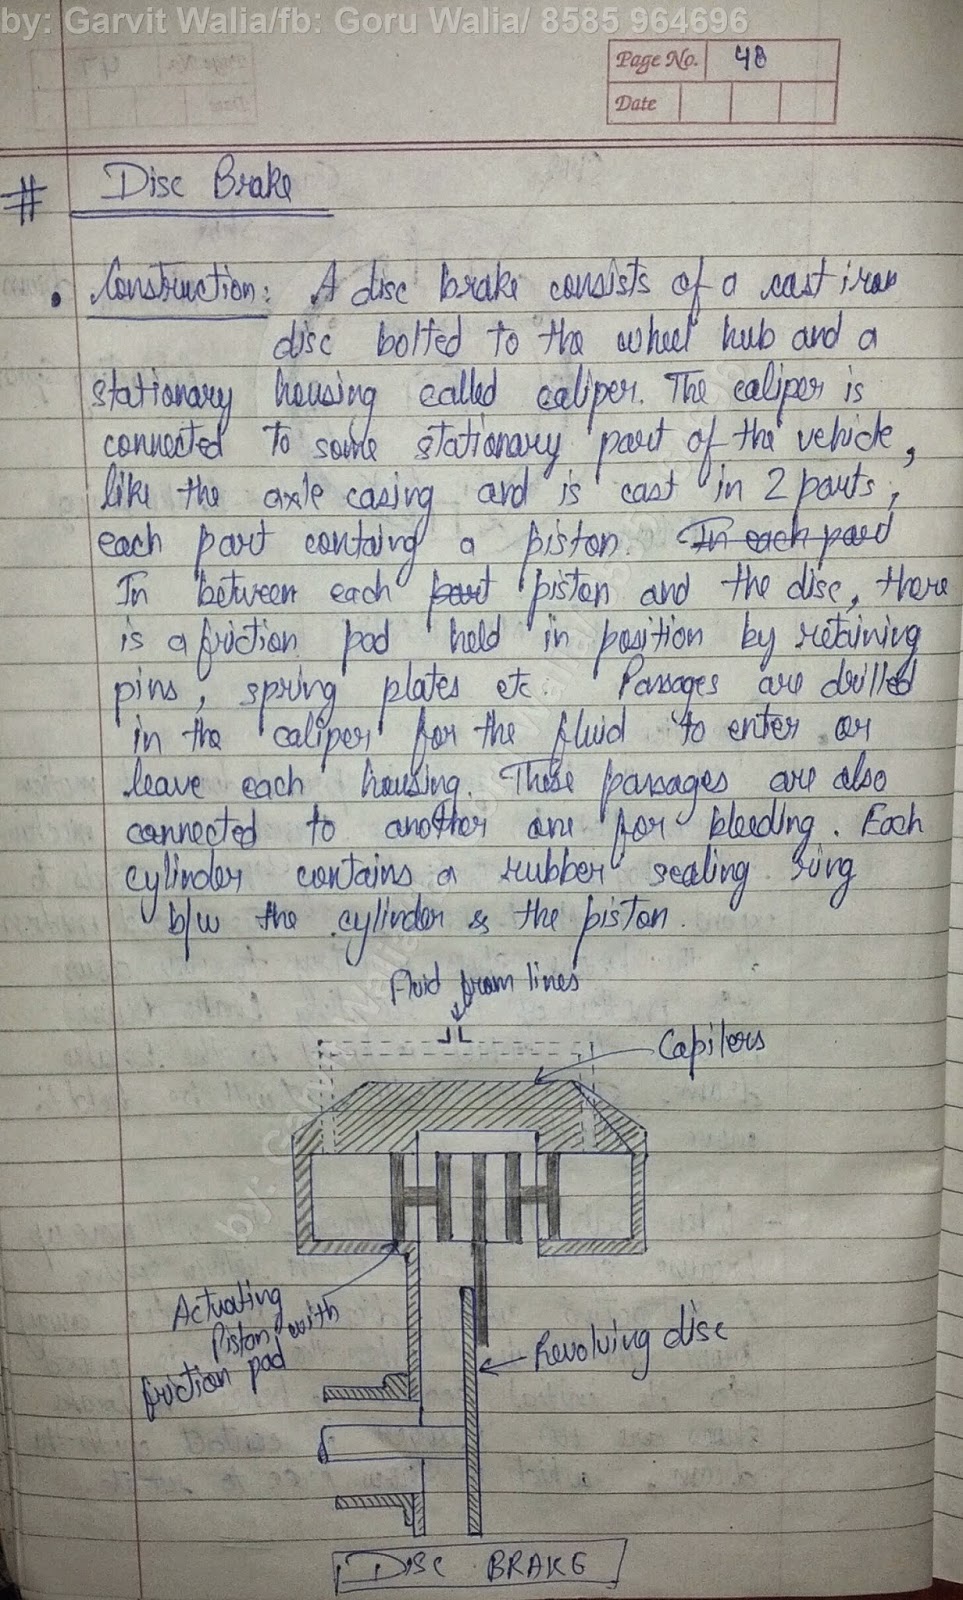 by: Garvit Walia/fb: Goru Walia/ 8585 964696
Page No. 48
Date
# Disc Brake
• Construction: A disc brake consists of a cast iron
disc bolted to the wheel hub and a
stationary housing called caliper. The caliper is
connected to some stationary part of the vehicle,
like the axle casing and is cast in 2 parts,
each part containg a piston. In each part
In between each part piston and the disc, there
is a friction pad held in position by retaining
pins, spring plates etc. Passages are drilled
in the caliper for the fluid to enter or
leave each housing. These passages are also
connected to another one for bleeding. Each
cylinder contains a rubber sealing ring
b/w the cylinder & the piston.
Fluid from lines
Capilers
Actuating
Piston with
friction pad
Revolving disc
DISC BRAKE